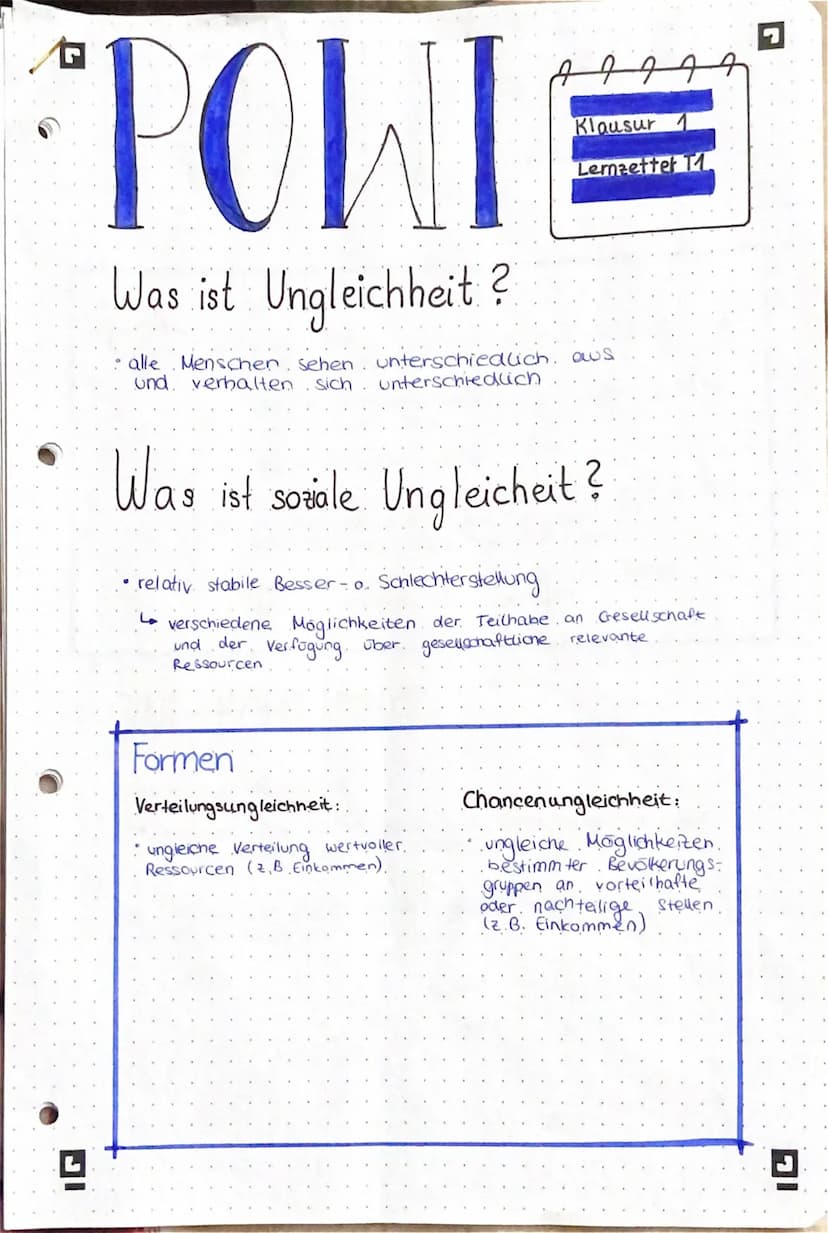 POWI
Klausur 1
Lernzettel T1
Was ist Ungleichheit?
• alle Menschen sehen unterschiedlich aus
und verhalten sich unterschiedlich
Was ist soziale Ungleicheit?
• relativ stabile Besser- o. Schlechterstellung
↳ verschiedene Möglichkeiten der Teilhabe an Gesellschaft
und der Verfügung über gesellschaftliche relevante
Ressourcen
Formen
Verteilungsungleichheit:
• ungleiche Verteilung wertvoller
Ressourcen (z.B. Einkommen)
Chancenungleichheit:
• ungleiche Möglichkeiten
bestimmter Bevölkerungs-
gruppen an vorteilhafte
oder nachteilige Stellen
(z.B. Einkommen)